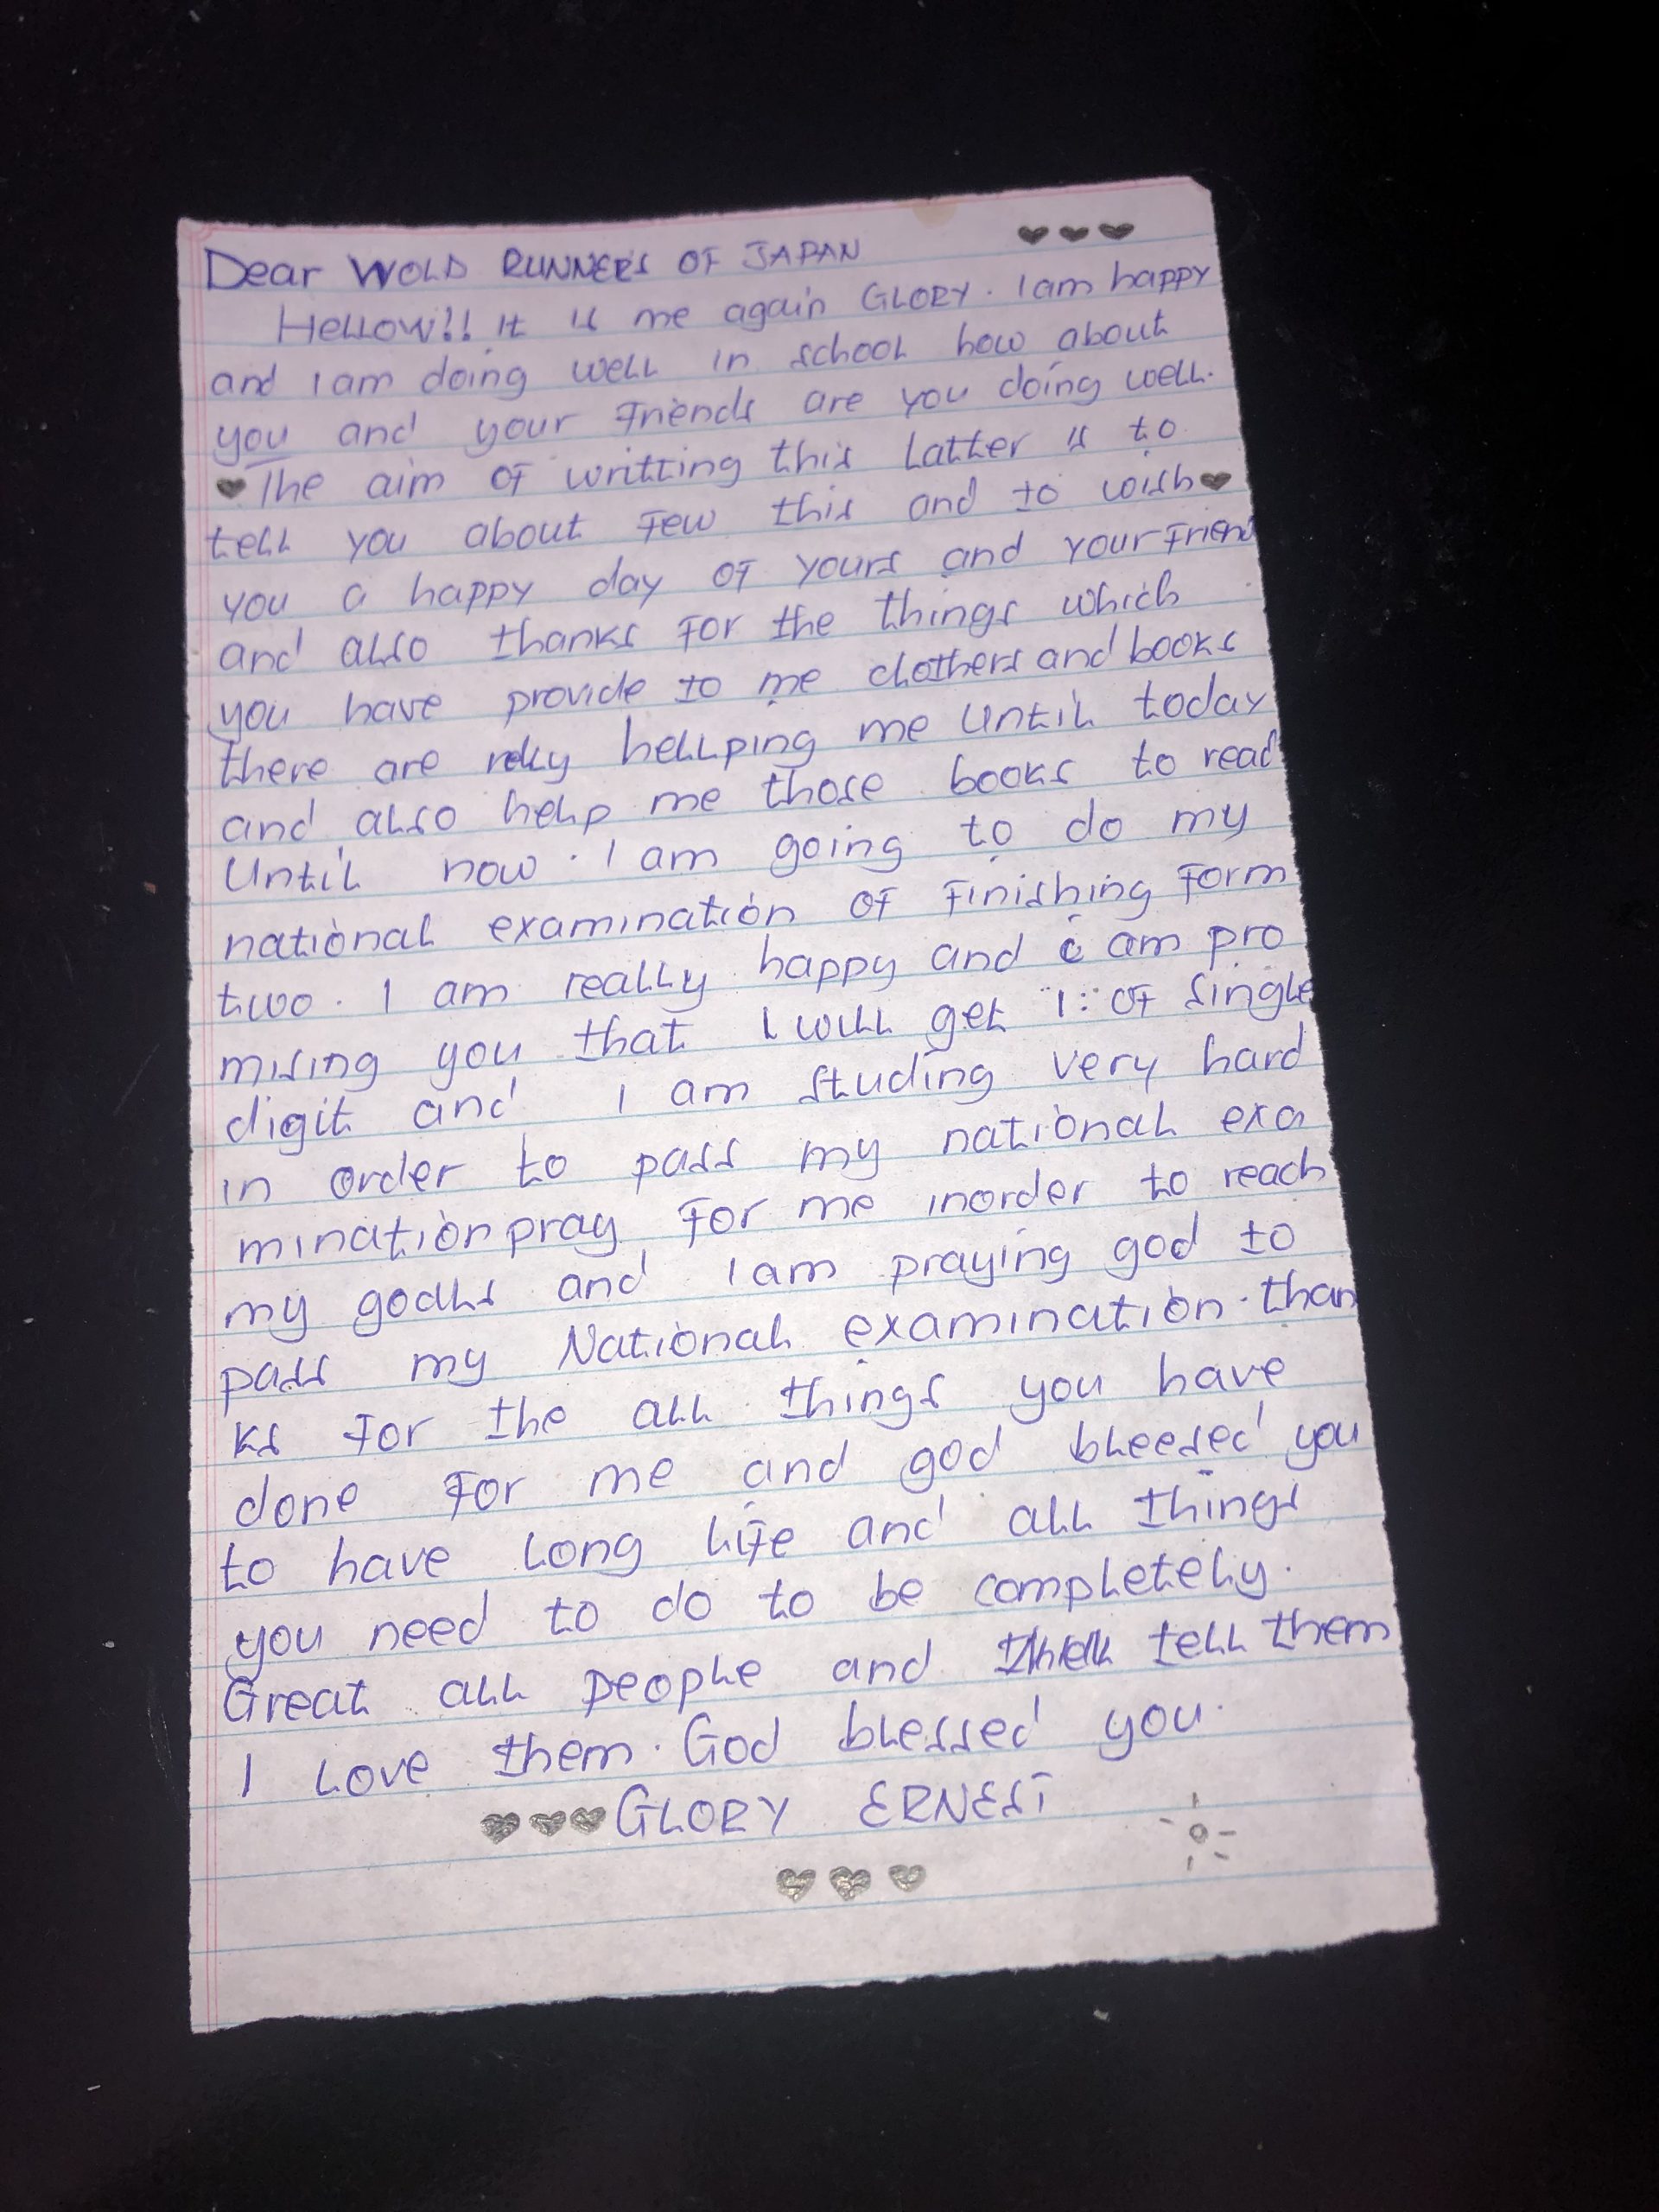 Dear WOLD RUNNER'S OF JAPAN
Hellow!! It is me again GLORY. I am happy
and I am doing well in school how about
you and your friends are you doing well.
The aim of writting this latter is to
tell you about few this and to wish
you a happy day of yours and your friend
and also thanks for the things which
you have provide to me clothers and books
there are relly hellping me until today
and also help me those books to read
Until now. I am going to do my
national examination of finishing form
two. I am really happy and i am pro
mising you that I will get 1: of single
digit and I am studing very hard
in order to pass my national exa
mination pray for me inorder to reach
my goalls and I am praying god to
pass my National examination. than
ks for the all things you have
done for me and god bleesed you
to have long life and all things
you need to do to be completely.
Great all people and tell them
I love them. God blessed you.
GLORY ERNEST